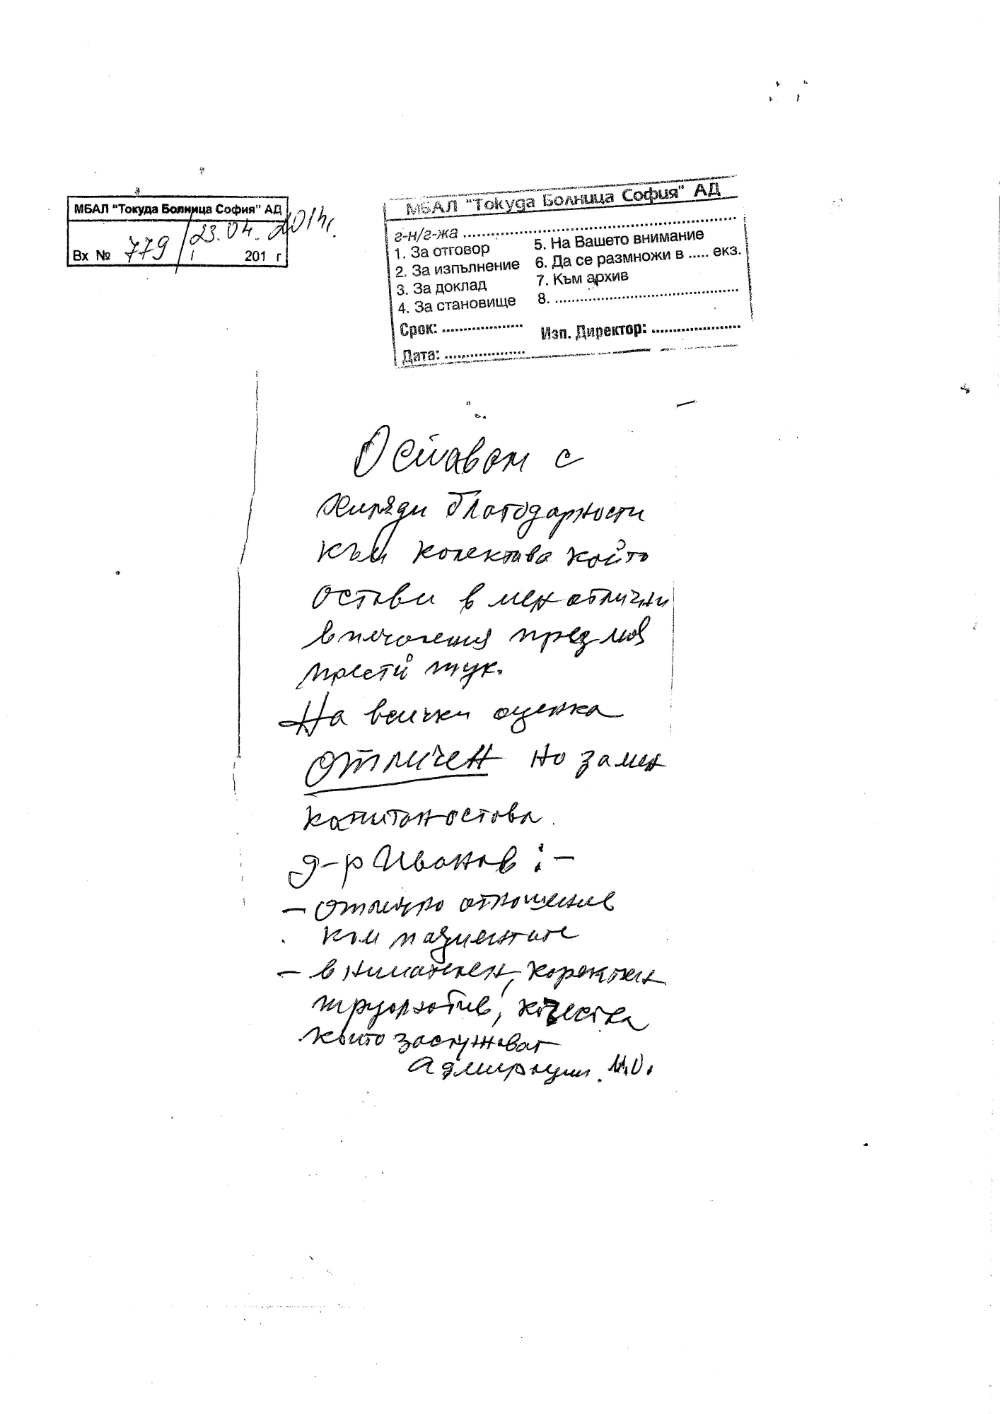 МБАЛ "Токуда Болница София" АД
Вх № 779 / 23.04.2014г.
201 г
МБАЛ "Токуда Болница София" АД
г-н/г-жа ..............................
1. За отговор
2. За изпълнение
3. За доклад
4. За становище
5. На Вашето внимание
6. Да се размножи в ..... екз.
7. Към архив
8. ..............................
Срок: ..................
Изп. Директор: ....................
Дата: ..................
Оставам с
хиляди благодарности
към колектива който
остави в мен отлични
впечатления
престой тук.
На всички оценка
отличен но за мен
д-р Иванов :-
- отлично отношение
към пациентите
- внимателен, коректен
трудолюбив, качества
които заслужават
Адмирации.